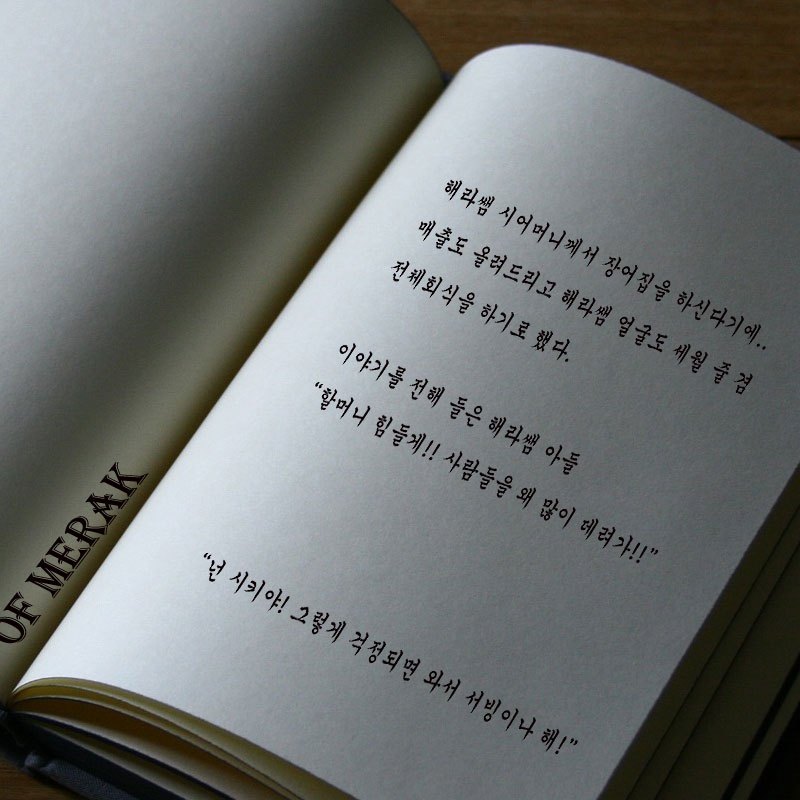 OF MERAK
해라쌤 시어머니께서 장어집을 하신다기에..
매출도 올려드리고 해라쌤 얼굴도 세워 줄 겸
전체회식을 하기로 했다.
이야기를 전해 들은 해라쌤 아들
“할머니 힘들게!! 사람들을 왜 많이 데려가!!”
“넌 시키야! 그렇게 걱정되면 와서 서빙이나 해!”